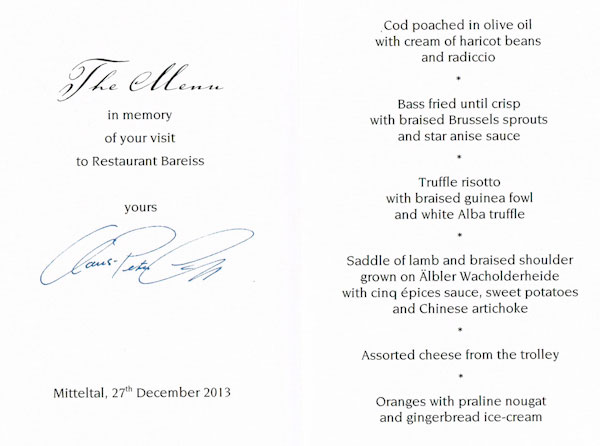 The Menu
in memory
of your visit
to Restaurant Bareiss
yours
Claus-Peter
Mitteltal, 27th December 2013
Cod poached in olive oil
with cream of haricot beans
and radiccio
*
Bass fried until crisp
with braised Brussels sprouts
and star anise sauce
*
Truffle risotto
with braised guinea fowl
and white Alba truffle
*
Saddle of lamb and braised shoulder
grown on Älbler Wacholderheide
with cinq épices sauce, sweet potatoes
and Chinese artichoke
*
Assorted cheese from the trolley
*
Oranges with praline nougat
and gingerbread ice-cream